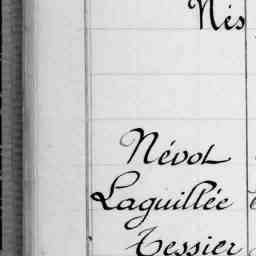 Nés
Névot
Laguillée
Tessier